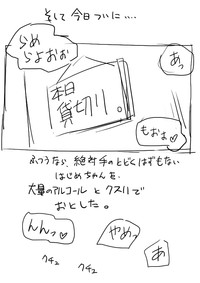 そして今日ついに‥‥
あっ
らめ
らよおぉ
本日
貸切り。
もおぉ♡
ふつうなら、絶対手のとどくはずもない
はじめちゃんを、
大量のアルコールとクスリで
おとした。
やめっ
んんっ♡
あ
クチュ
クチュ